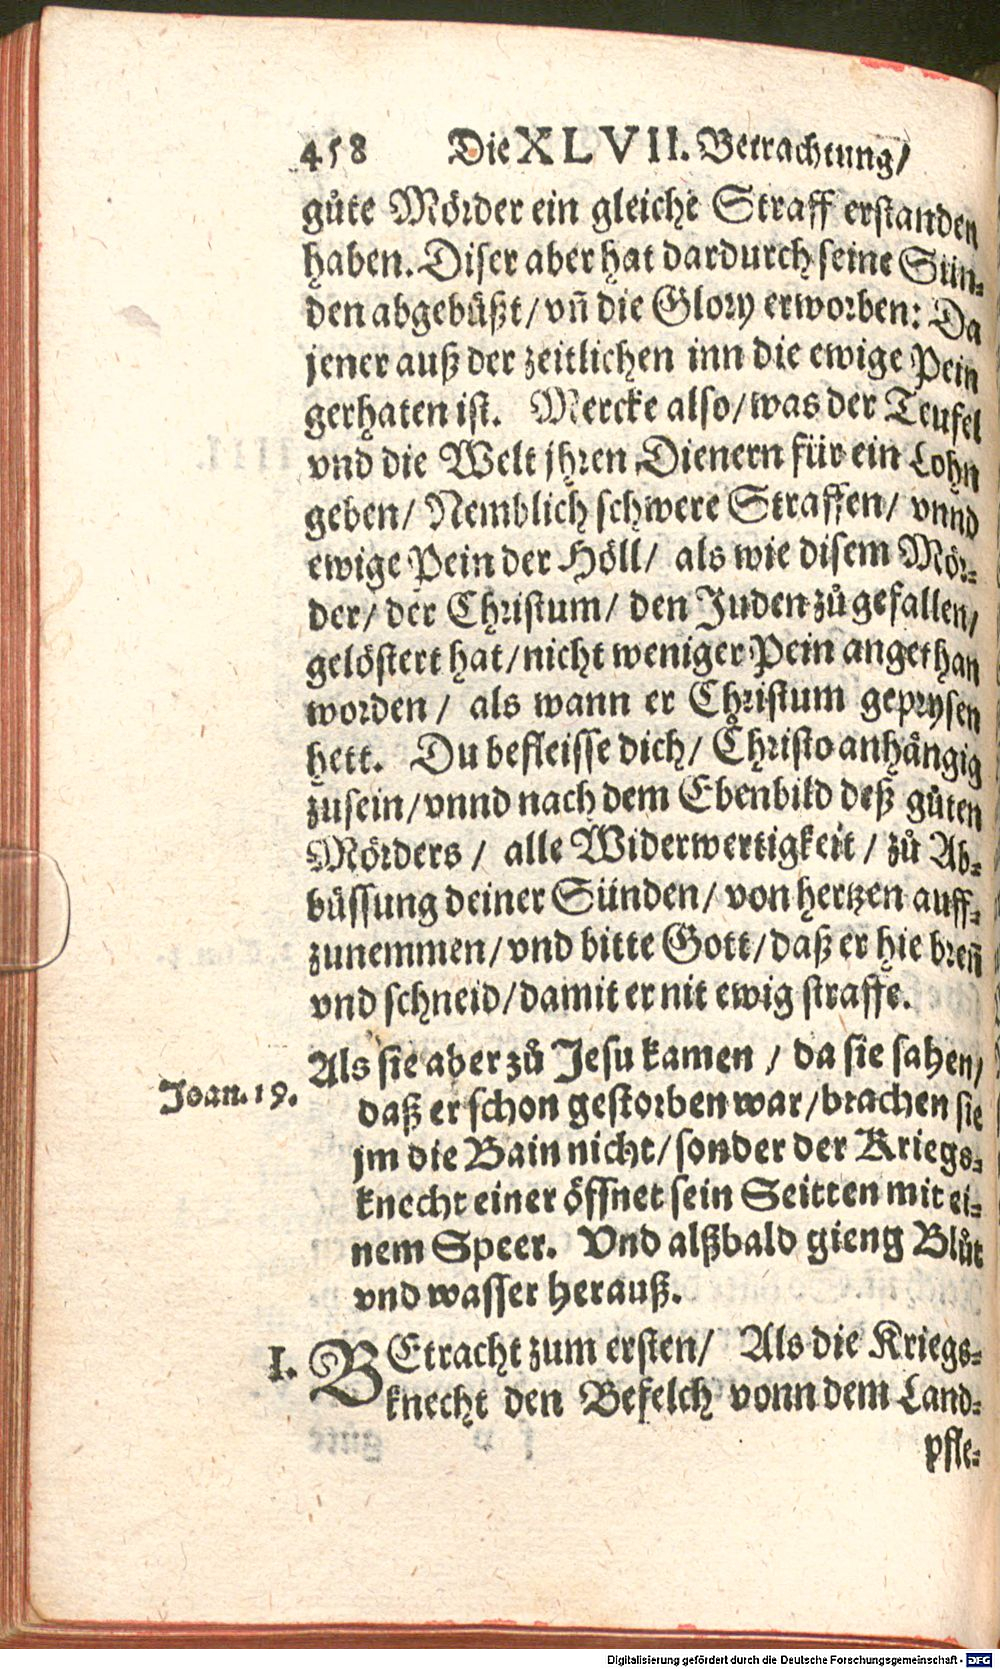 458 Die XLVII. Betrachtung/
gůte Mörder ein gleiche Straff erstanden
haben. Diser aber hat dardurch seine Sün-
den abgebüßt/ vn̄ die Glory erworben: Da
jener auß der zeitlichen inn die ewige Pein
gerhaten ist. Mercke also/ was der Teufel
vnd die Welt jhren Dienern für ein Lohn
geben/ Nemblich schwere Straffen/ vnnd
ewige Pein der Höll/ als wie disem Mör-
der/ der Christum/ den Juden zů gefallen/
gelöstert hat/ nicht weniger Pein angethan
worden/ als wann er Christum geprysen
hett. Du befleisse dich/ Christo anhängig
zusein/ vnnd nach dem Ebenbild deß gůten
Mörders/ alle Widerwertigkeit/ zů Ab-
büssung deiner Sünden/ von hertzen auff-
zunemmen/ vnd bitte Gott/ daß er hie bren̄
vnd schneid/ damit er nit ewig straffe.
Als sie aber zů Jesu kamen/ da sie sahen/
Joan. 19.
daß er schon gestorben war/ brachen sie
jm die Bain nicht/ sonder der Kriegs-
knecht einer öffnet sein Seitten mit ei-
nem Speer. Vnd alßbald gieng Blůt
vnd wasser herauß.
I. BEtracht zum ersten/ Als die Kriegs-
knecht den Befelch vonn dem Land-
pfle-
Digitalisierung gefördert durch die Deutsche Forschungsgemeinschaft - DFG